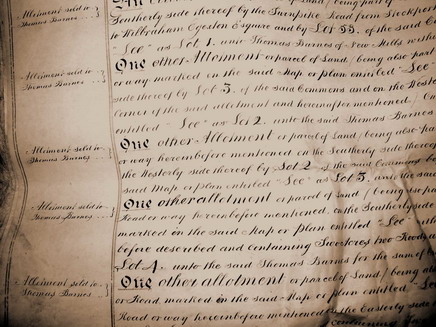 One other Allotment or parcel of Land / being part of
Allotment sold to
Southerly side thereof by the Turnpike Road from Stockport
Thomas Barnes
to Wilbraham Egerton Esquire and by Lot 99. of the said
"See" as Lot 1. unto Thomas Barnes of New Mills within
Allotment sold to
One other Allotment or parcel of Land / being also part
Thomas Barnes
or way marked on the said Map or plan entitled "See"
side thereof by Lot 3. of the said Commons and on the Westerly
Corner of the said allotment and hereinafter mentioned /
entitled "See" as Lot 2. unto the said Thomas Barnes
Allotment sold to
One other Allotment or parcel of Land / being also part
Thomas Barnes
or way hereinbefore mentioned on the Southerly side thereof
the Westerly side thereof by Lot 2. of the said Commons
said Map or plan entitled "See" as Lot 3. unto the said
Allotment sold to
One other allotment or parcel of Land / being also part
Thomas Barnes
Road or way hereinbefore mentioned, on the Southerly side
marked in the said Map or plan entitled "See"
before described and containing two Roods
Lot 4. unto the said Thomas Barnes for the sum of
Allotment sold to
One other allotment or parcel of Land / being also
Thomas Barnes
or Road, marked in the said Map or plan entitled "See"
Road or way hereinbefore mentioned on the Easterly side
containing